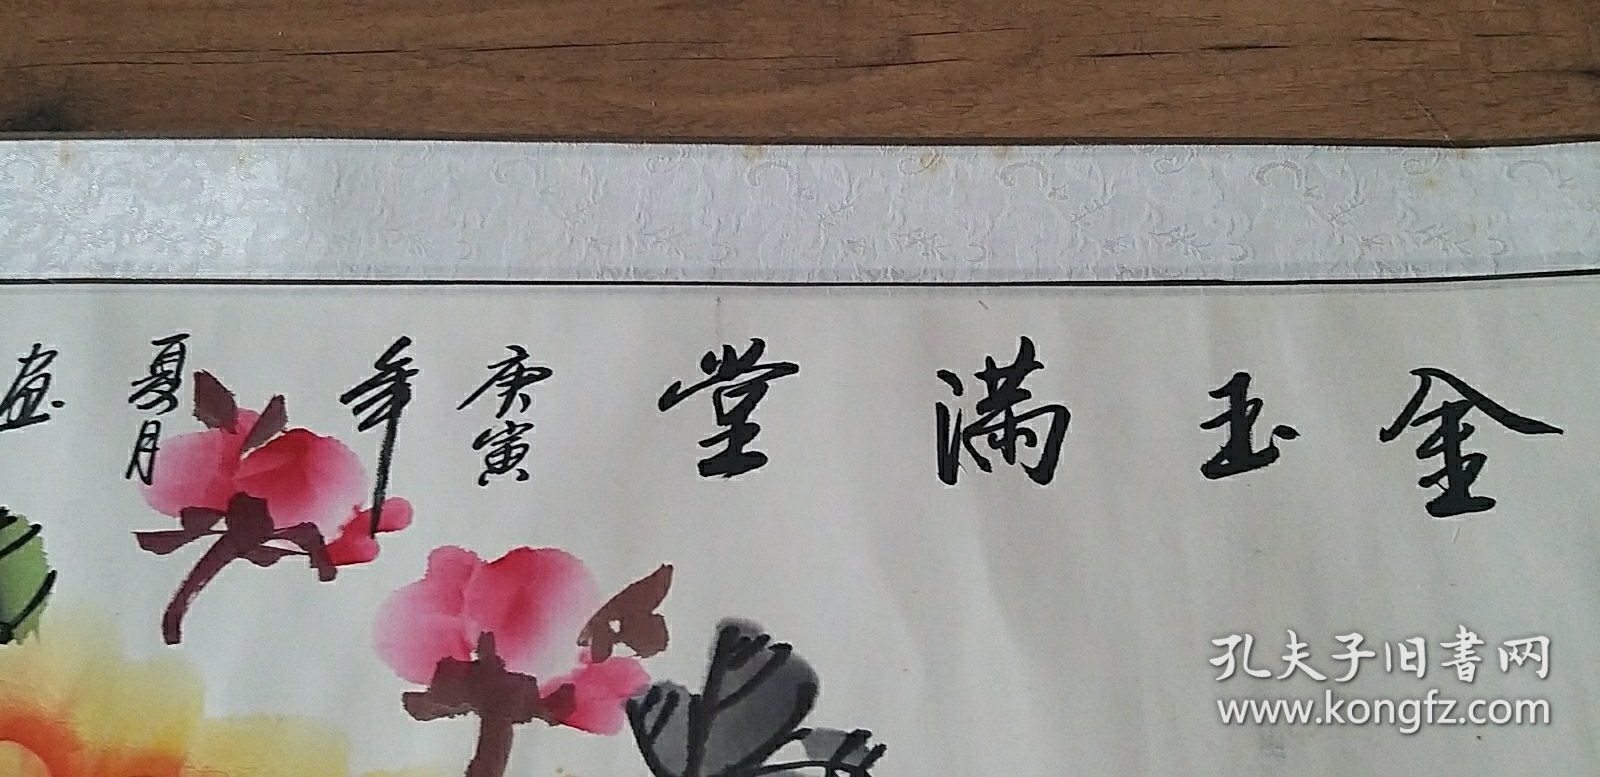 金玉满堂
庚寅年
夏月
画
孔夫子旧书网
www.kongfz.com